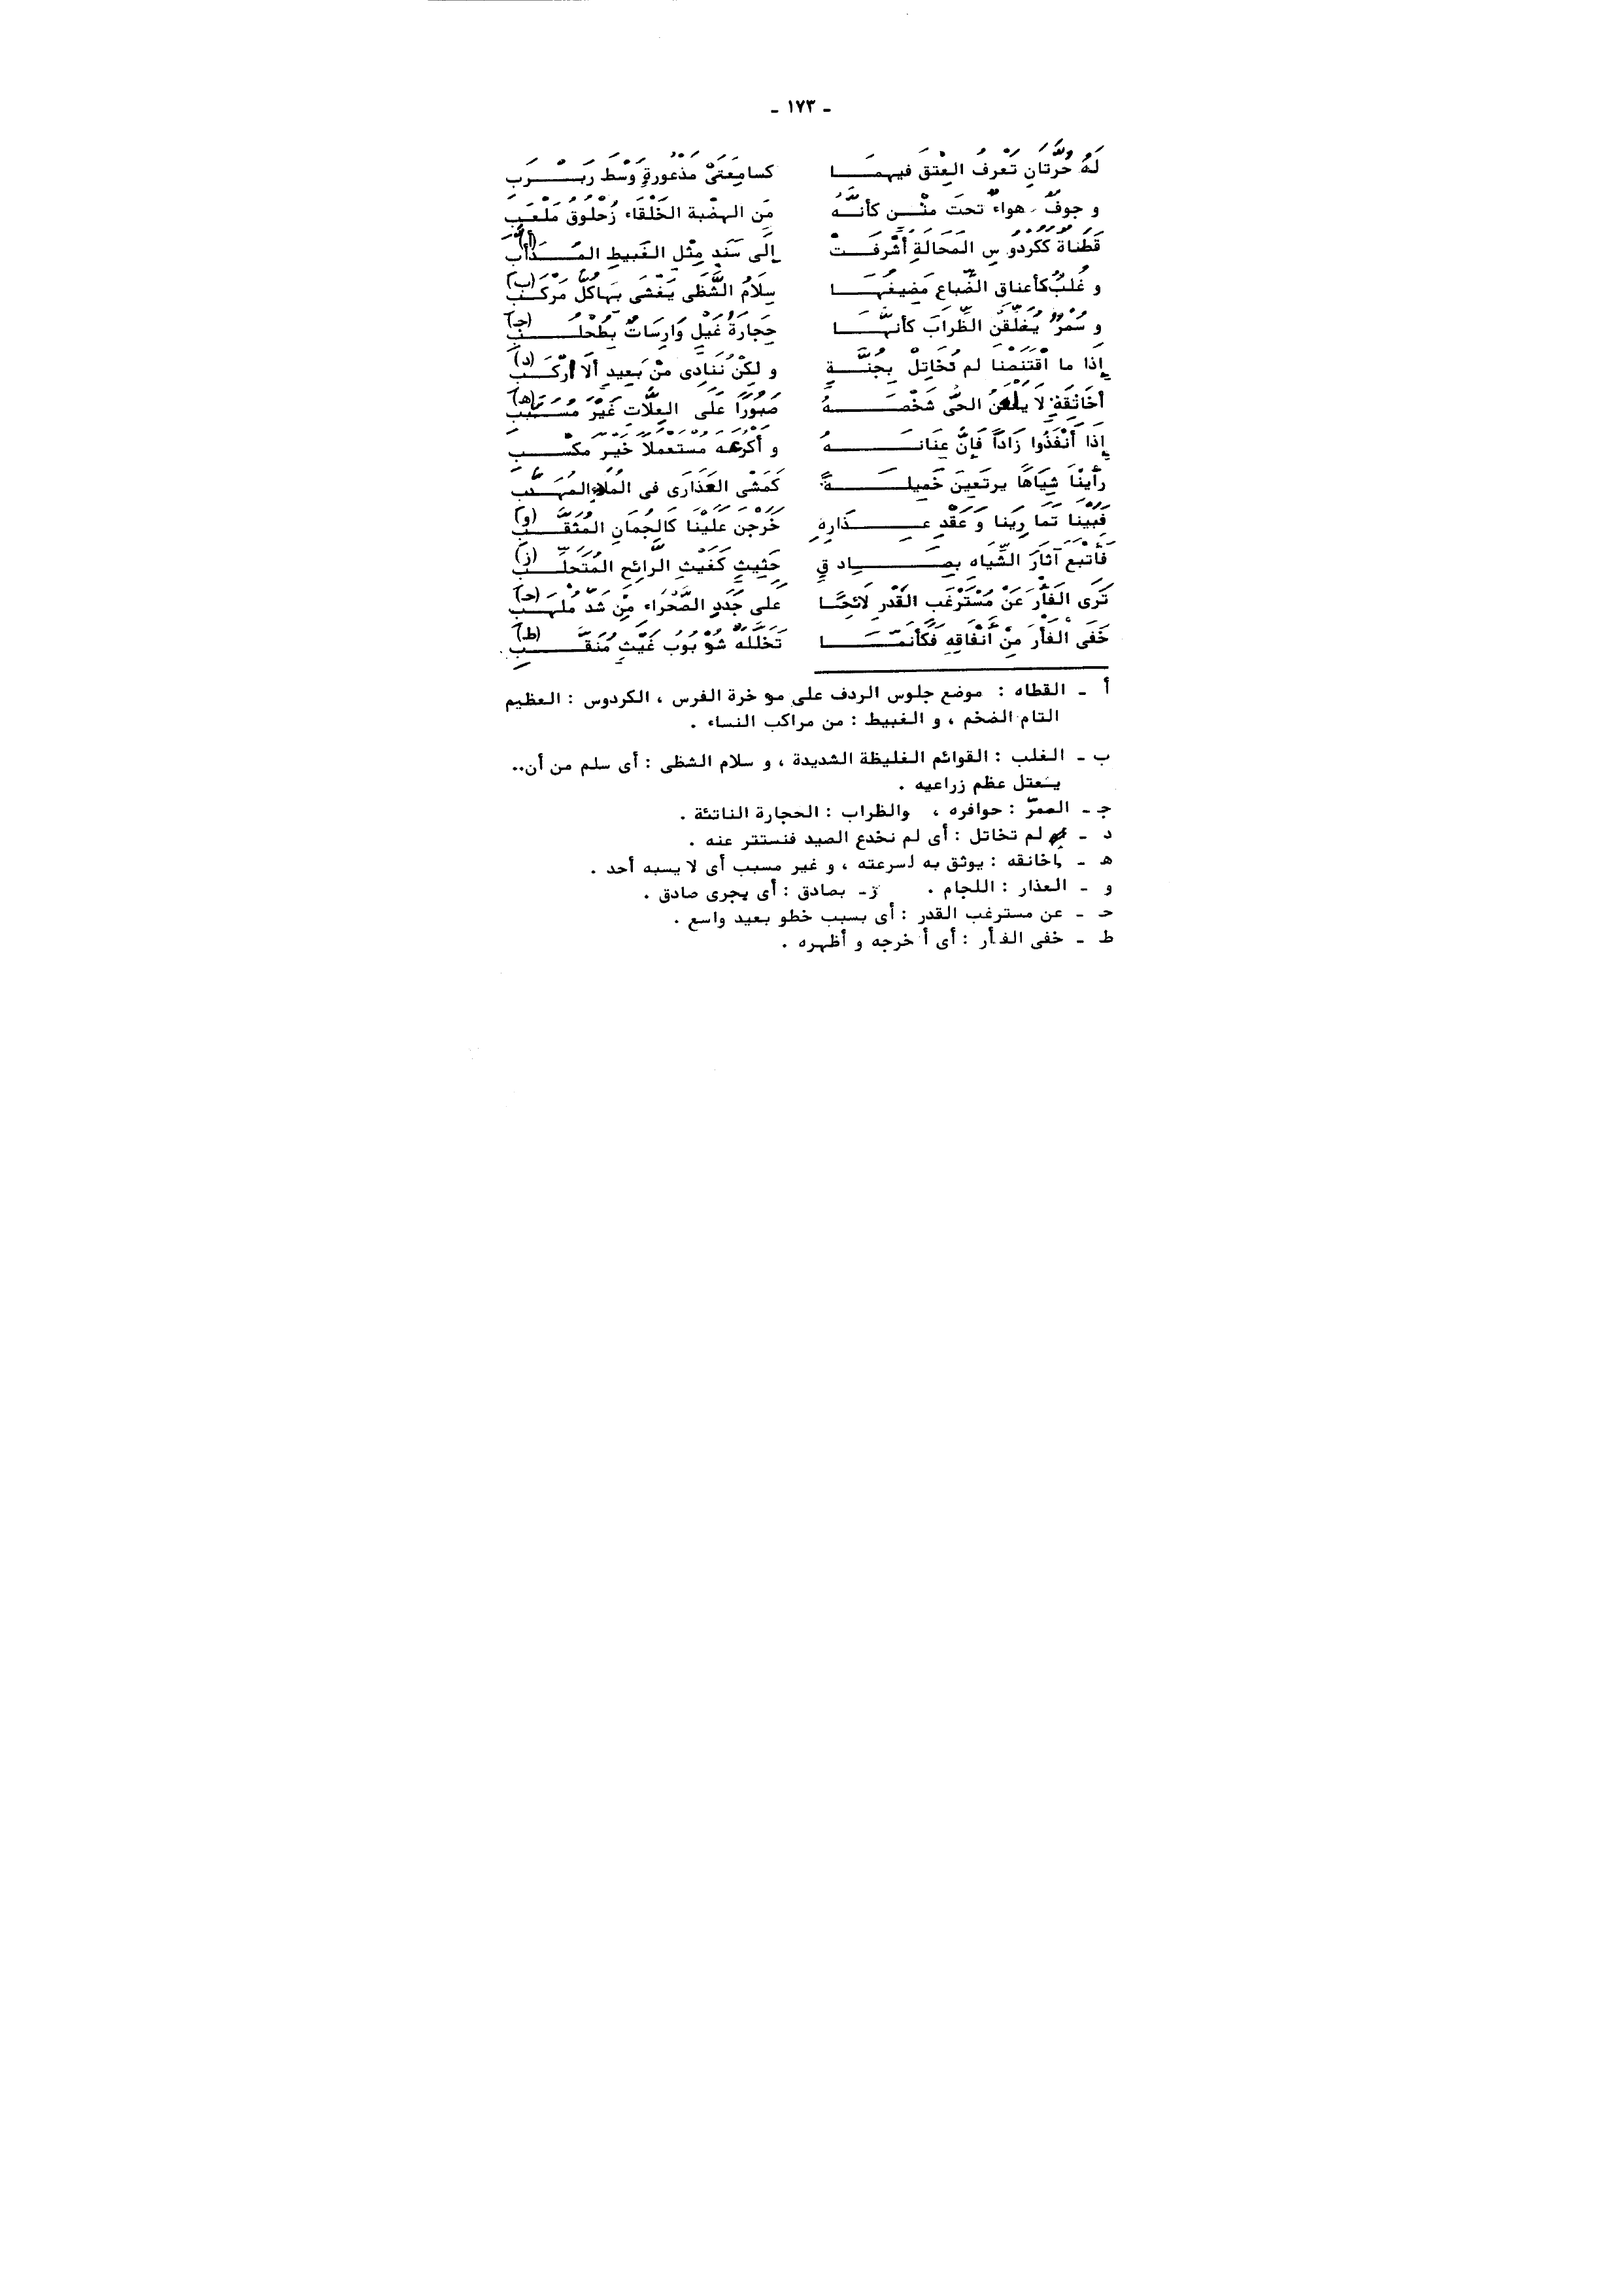 - ١٧٣ -
لَهُ حُرَّتانِ تَعْرفُ العِتْقَ فيهمَا كسامِعَتَىْ مَذْعورةٍ وَسْطَ رَبْرَبِ
و جوفٌ هواءٌ تحتَ متْنٍ كأنَّهُ مَن الهضْبة الخَلْقَاء زُحْلُوقُ مَلْعَبِ
قَطناة ككردو سِ المَحَالَةِ أشْرفَتْ إلى سَنَدٍ مِثْلِ الغَبيطِ المُذَأبِ (أ)
و غُلبٌ كأعناقِ الضِّباعِ مَضِيغُهَا سِلَامُ الشَّظَى يَغْشَى بَهاكلَّ مَرْكَبِ (ب)
و سُمْرٌ يُفَلِّقْنَ الظِّرَابَ كأنَّهَا حِجارَةُ غَيْلٍ وَارِسَاتٌ بِطُحْلُبِ (جـ)
إذا ما اقْتَنَصْنا لم نُخَاتِلْ بِجُنَّةٍ و لكِنْ نُنَادِى مَنْ بَعِيدٍ ألَا ارْكَبِ (د)
أخَاثِقَةٍ لَا يلعَنُ الحىُّ شَخْصَهُ صَبُورًا عَلَى العِلَّاتِ غَيْرَ مُسَبَّبِ (هـ)
إذَا أَنْفَذُوا زَاداً فَإِنَّ عِنَانَهُ و أكرعه مستعملاً خَيْرُ مكْسَبِ
رأَيْنَا شِيَاهًا يرتَعِينَ خَمِيلَةً كَمَشْىِ العَذَارَى فى المُلاءِ المُهَدَّبِ
فَبَيْنا تَما رِينا وَ عَقْدِ عِذَارِهِ خَرَجْن عَلَيْنَا كَالجُمَانِ المُثَقَّبِ (و)
فَأَتْبَعَ آثَارَ الشِّيَاهِ بِصَاد قٍ حَثِيثٍ كَغَيْثِ الرائِحِ المُتَحلِّبِ (ز)
تَرَى الفَأْرَ عَنْ مُسْتَرْغَبِ القَدْرِ لَائِحًا على جَدَدِ الصَّحْرَاء مِنْ شَدِّ مُلْهِبِ (حـ)
خَفَى الفَأْرَ مِنْ أَنْفَاقِهِ فَكَأَنَّمَا تَخَلَّلَهُ شُؤْ بُوبُ غَيْثٍ مُنَقَّبِ (ط)
أ - القطاه : موضع جلوس الردف على مؤ خرة الفرس ، الكردوس : العظيم
التام الضخم ، و الغبيط : من مراكب النساء .
ب - الغلب : القوائم الغليظة الشديدة ، و سلام الشظى : أى سلم من أن..
يَعتل عظم زراعيه .
جـ - السمرّ : حوافره ، والظراب : الحجارة الناتئة .
د - لم تخاتل : أى لم نخدع الصيد فنستتر عنه .
هـ - اخاثقه : يوثق به لسرعته ، و غير مسبب أى لا يسبه أحد .
و - العذار : اللجام . ز- بصادق : أى يجرى صادق .
حـ - عن مسترغب القدر : أى بسبب خطو بعيد واسع .
ط - خفى الفأر : أى أ خرجه و أظهره .